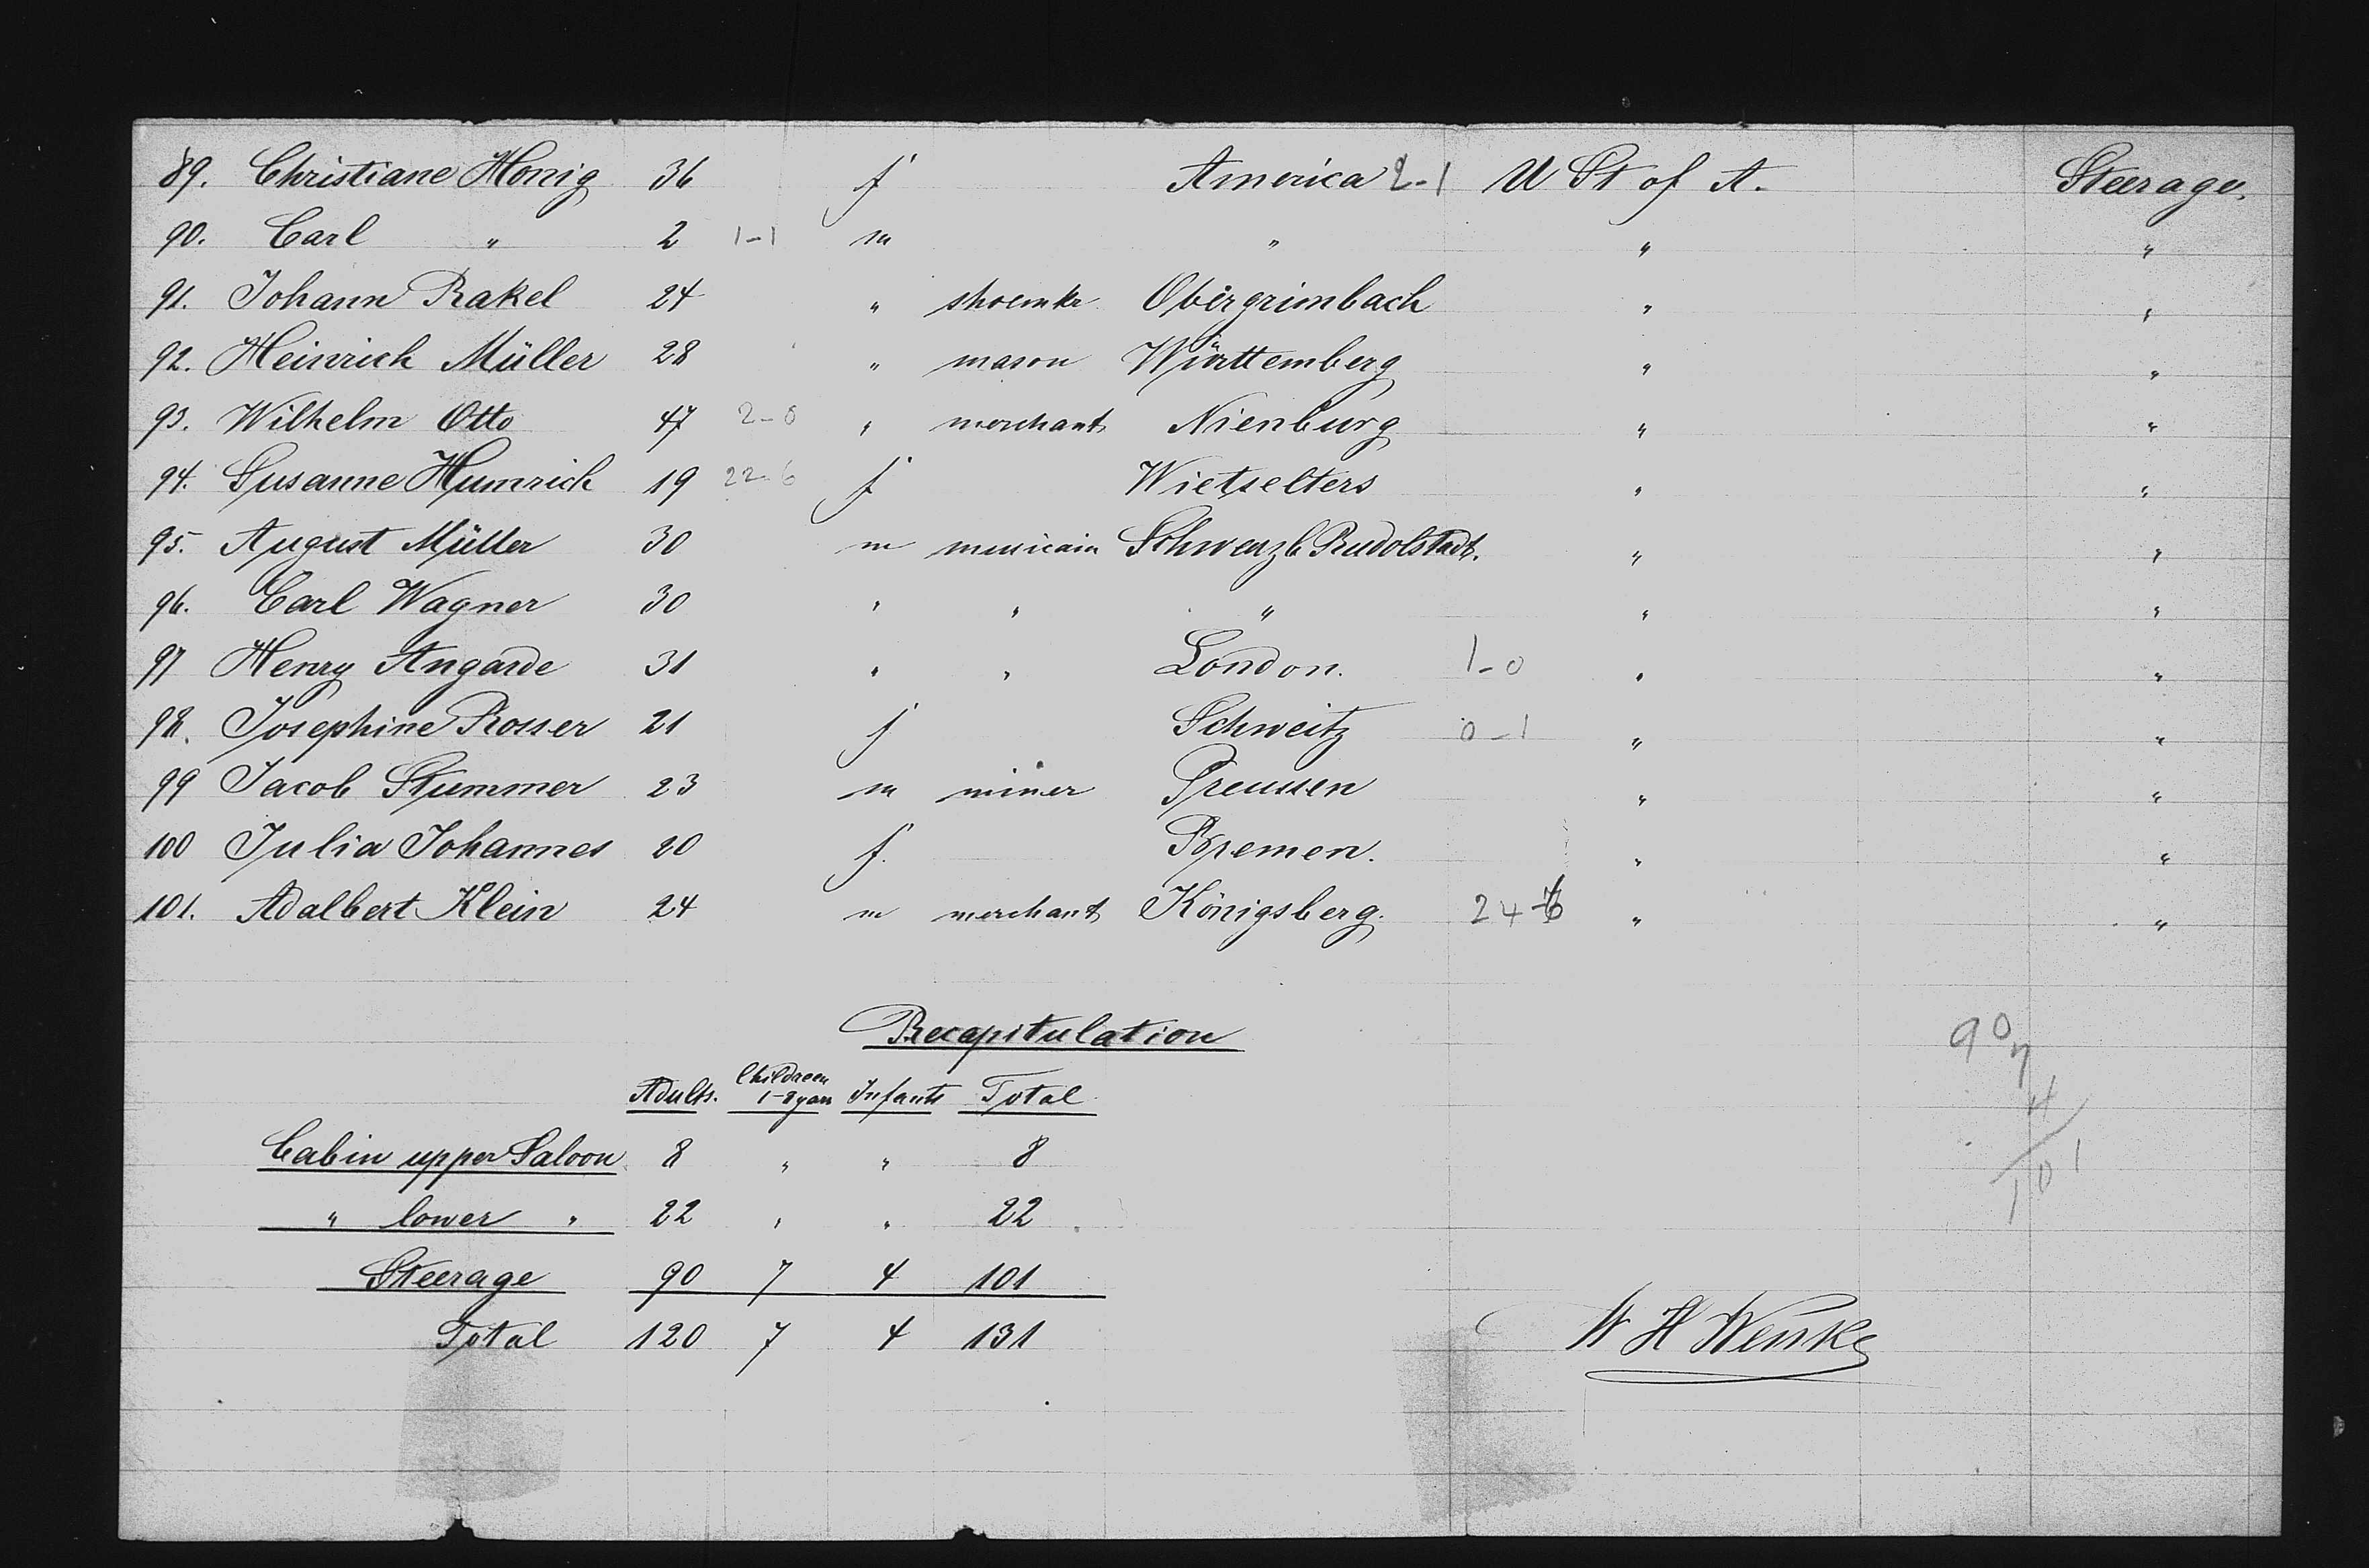 89. Christiane Honig 36 f America 2-1 U St of A. Steerage.
90. Carl " 2 1-1 m " " "
91. Johann Rakel 24 " shoemkr Obergrimbach " "
92. Heinrich Müller 28 " mason Württemberg " "
93. Wilhelm Otto 47 2-0 " merchant Nienburg " "
94. Susanne Humrich 19 22-6 f Wietselters " "
95. August Müller 30 m musicain Schwarzb Rudolstadt. " "
96. Carl Wagner 30 " " " " "
97 Henry Angarde 31 " " London. 1-0 " "
98. Josephine Rosser 21 f Schweitz 0-1 " "
99 Jacob Stummer 23 m miner Preussen " "
100 Julia Johannes 20 f. Bremen. " "
101. Adalbert Klein 24 m merchant Königsberg. 24 " "
Recapitulation
Adults. Children 1-8 years Infants Total
Cabin upper Saloon 8 " " 8
" lower " 22 " " 22
Steerage 90 7 4 101
Total 120 7 4 131
90
7
4
101
W H Wenke